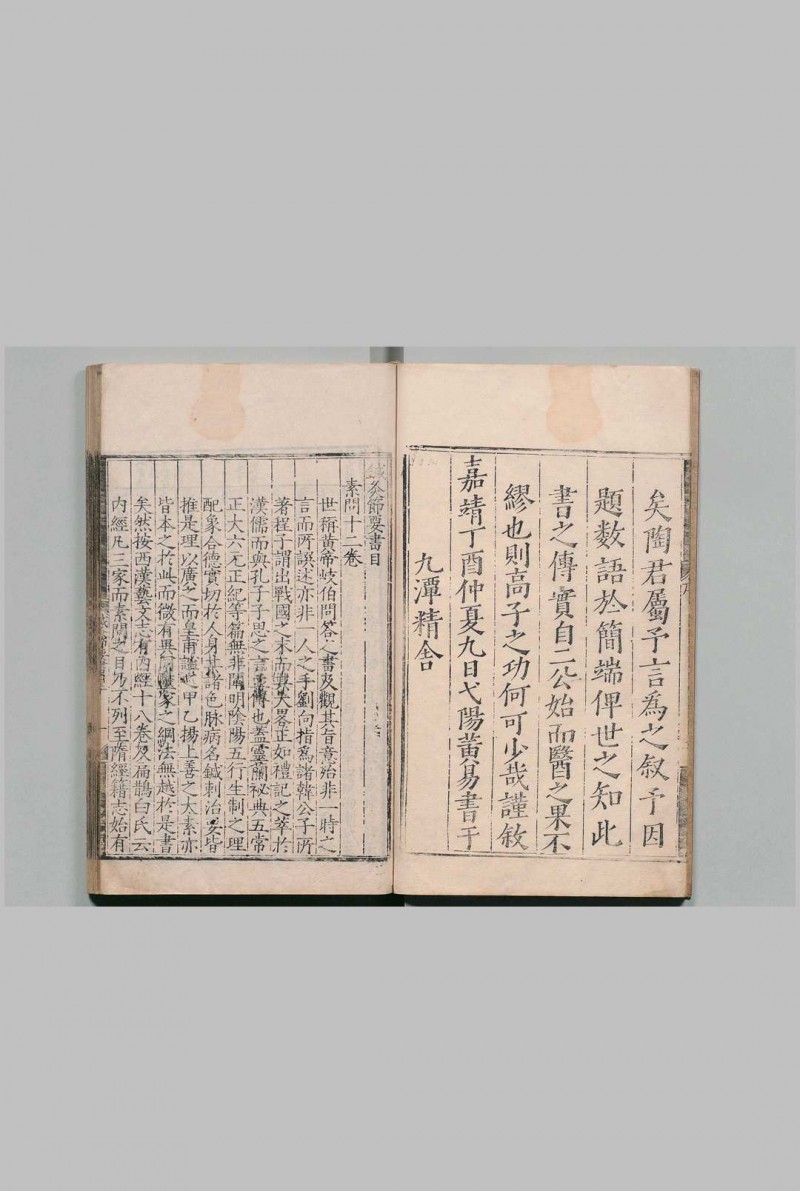 矣陶君屬予言為之敘予因
題數語於簡端俾世之知此
書之傳實自二公始而醫之果不
繆也則高子之功何可少哉謹敘
嘉靖丁酉仲夏九日弋陽黃易書于
九潭精舍
鍼灸節要書目
素問十二卷
世稱黃帝岐伯問答之書及觀其旨意殆非一時之
言而所譔述亦非一人之手劉向指為諸韓公子所
著程子謂出戰國之末而其大畧正如禮記之萃於
漢儒而與孔子子思之言並傳也蓋靈蘭祕典五常
正大六元正紀等篇無非闡明陰陽五行生制之理
配象合德實切於人身其諸色脉病名鍼刺治要皆
推是理以廣之而皇甫謐之甲乙楊上善之太素亦
皆本之於此而微有異同醫家之綱法無越於是書
矣然按西漢藝文志有內經十八卷及扁鵲白氏云
內經凡三家而素問之目乃不列至隋經籍志始有